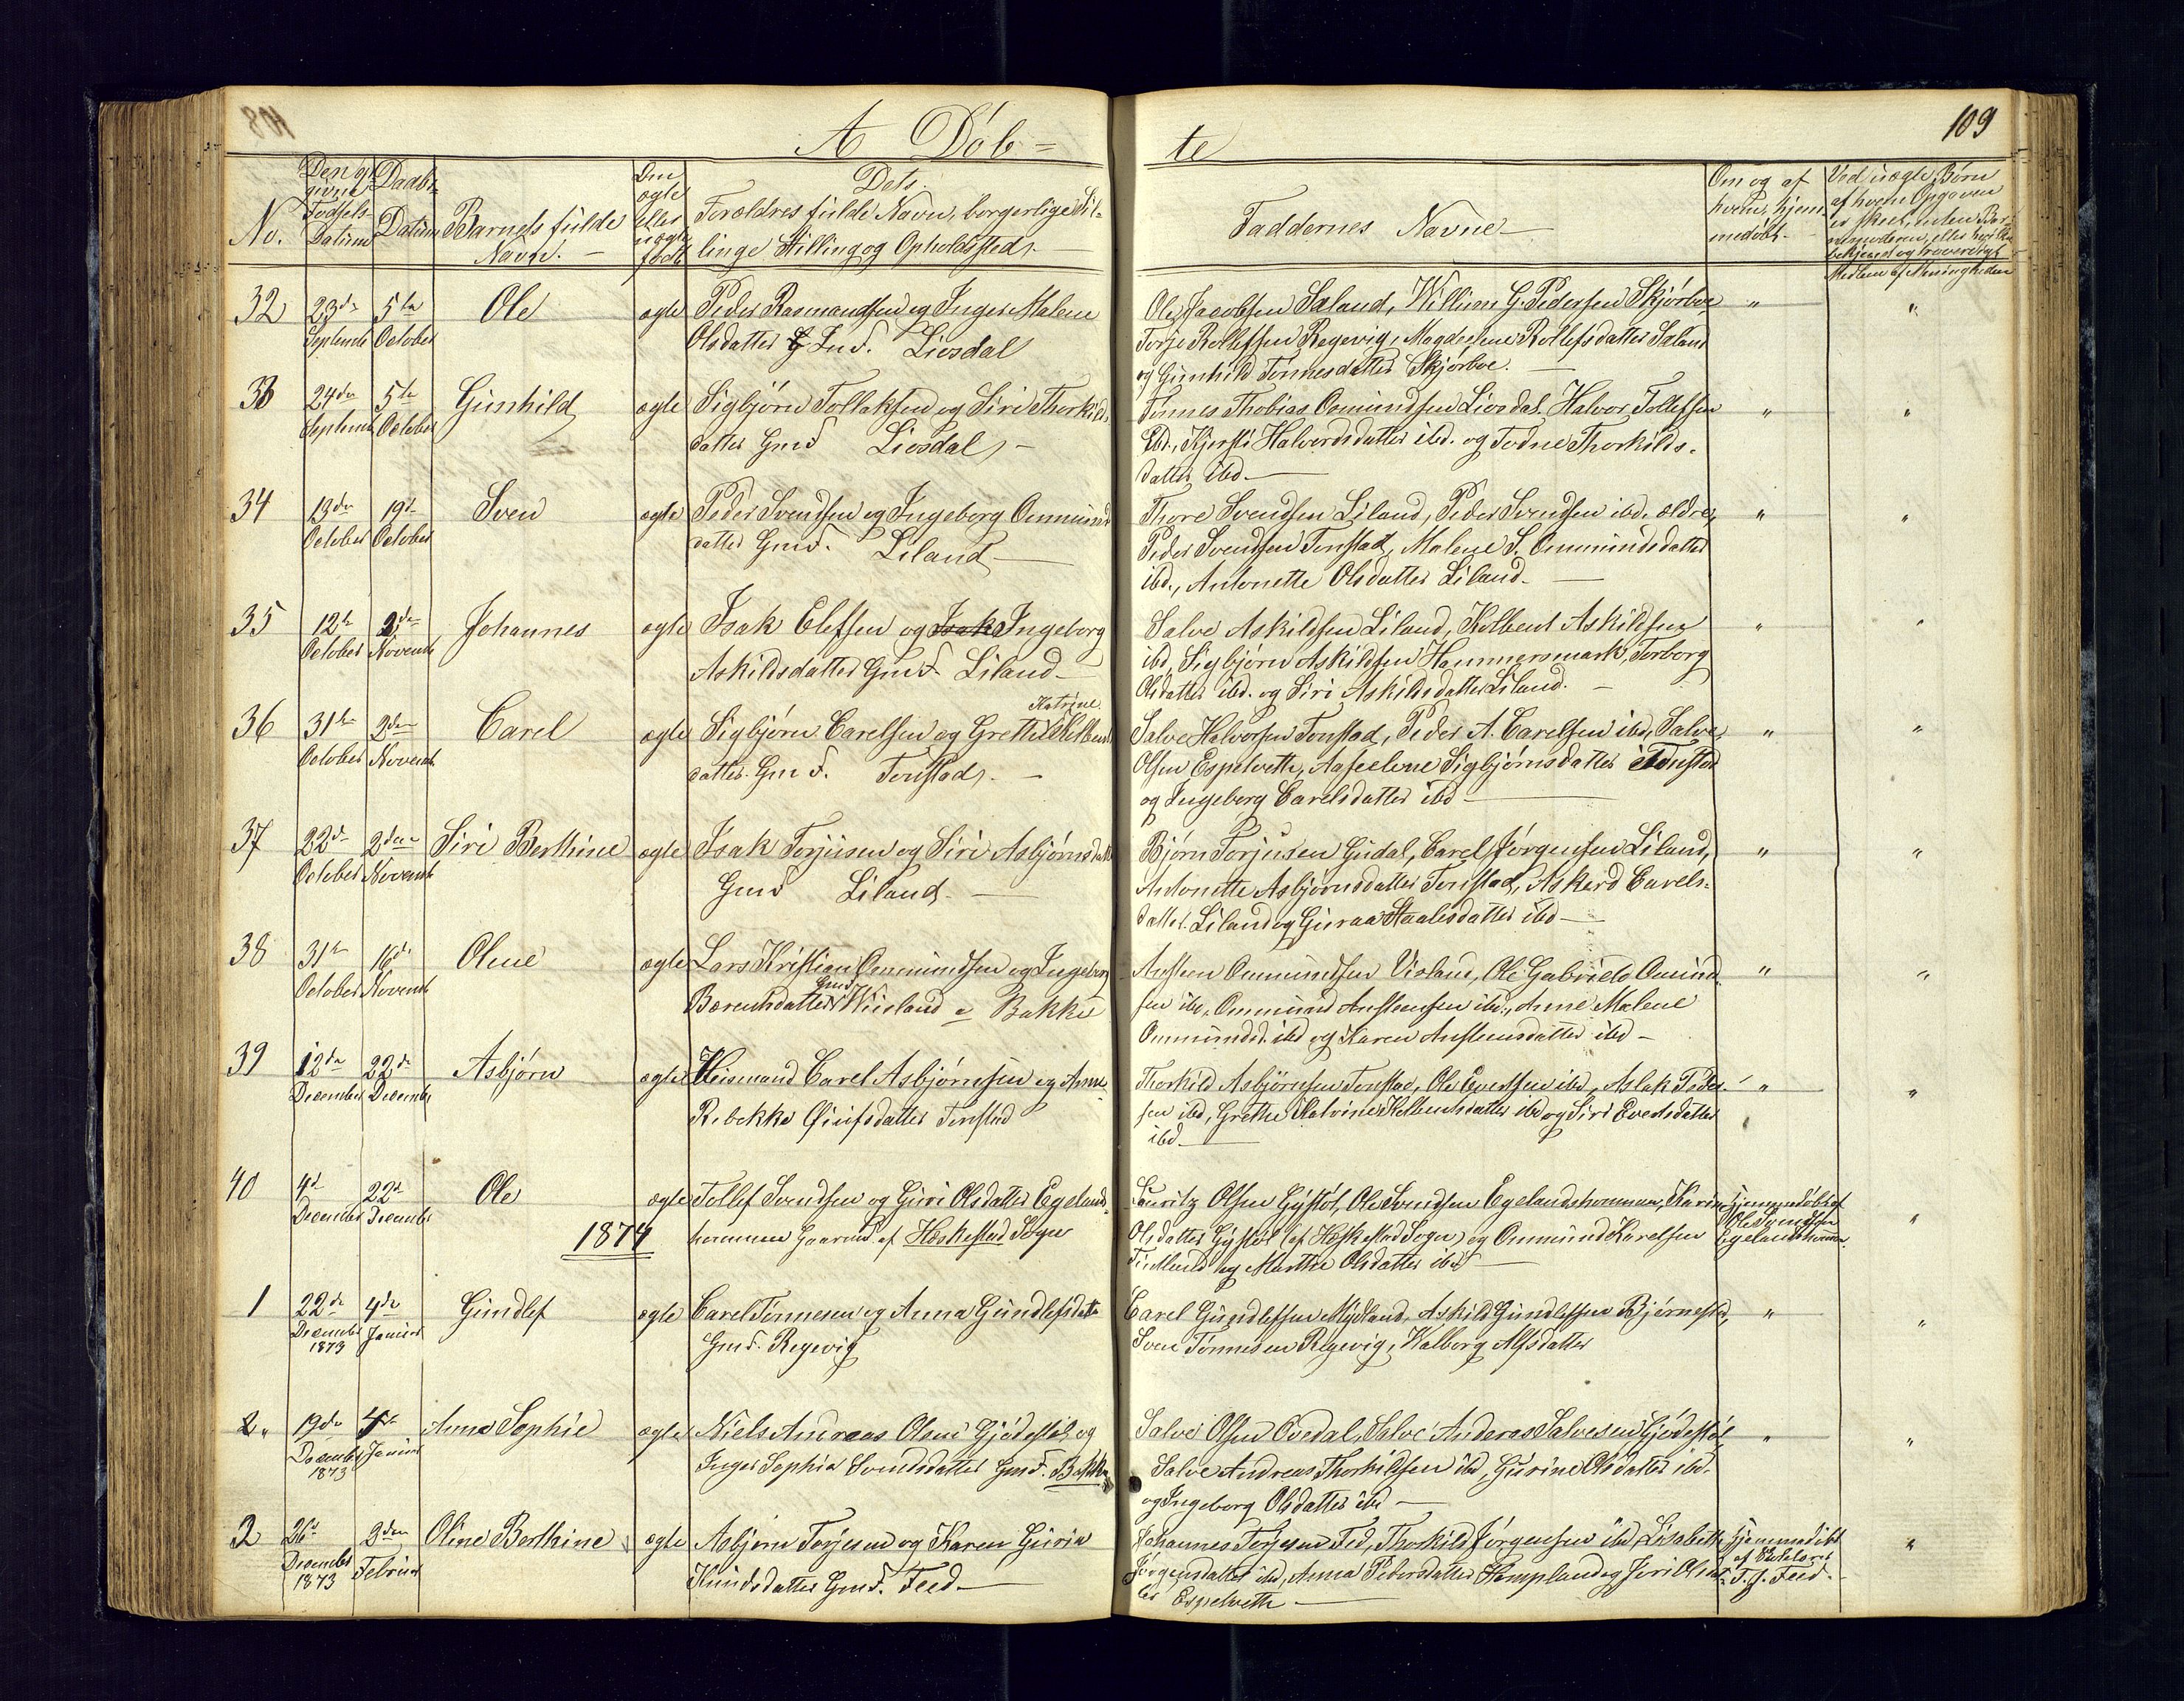 109
A Döb=
te
No.
Den opgivne Fødsels-Datum
Daabs-Datum
Barnets fulde Navn.
Om ægte eller uægte født
Dets Forældres fulde Navn, borgerlige Stillinge Stilling og Opholdssted.
Faddernes Navne
Om og af hvem hjemmedøbt
Ved uægte Børn af hvem Opgaven er skeet, uden Barnemoderen, eller
Medlem af Menigheden
32
23de September
5te October
Ole
ægte
Peder Rasmandsen og Inger Malene
Olsdatter Gmd. Liosdal
Ole Jacobsen Saland, William G. Pedersen Skjörboe
Torje Rollefsen Regevig, Magdelene Rollefsdatter Saland
og Gunhild Tönnesdatter Skjörboe.
"
"
33
24de September
5te October
Gunhild
ægte
Sigbjörn Tollaksen og Siri Thorkilds
datter Gmd Liosdal
Tönnes Thobias Osmundsen Liosdal. Halvor Tollefsen
Ibd., Kjersti Halvordsdatter ibd. og Todne Thorkilds-
datter ibd
"
"
34
13de October
19de October
Sven
ægte
Peder Svendsen og Ingeborg Ommund
datter Gmd. Liland
Thore Svendsen Liland, Peder Svendsen ibd. ældre,
Peder Svendsen Tonstad, Malene S. Ommundsdatter
ibd., Antonette Olsdatter Liland.
"
"
35
12te October
2den Novemb
Johannes
ægte
Isak Elefsen og Isak Ingeborg
Askildsdatter Gmd. Liland
Salve Askildsen Liland, Kolbent Askildsen
ibd, Sigbjörn Askildsen Hammersmark, Torborg
Olsdatter ibd. og Siri Askildsdatter Liland.
"
"
36
31te October
2den Novemb
Carel
ægte
Katrine
Sigbjörn Carelsen og Grethe Kolbents
datter. Gmd. Tonstad.
Salve Halvorsen Tonstad, Peder A. Carelsen ibd, Salve
Olsen Espetveth, Aaseelene Sigbjörnsdatter Tonstad
og Ingeborg Carelsdatter ibd
"
"
37
22de October
2den Novemb
Siri Berthine
ægte
Isak Torjusen og Siri Asbjörnsdatt
Gmd Liland.
Björn Torjusen Gudal, Carel Jörgensen Liland,
Antonette Asbjörnsdatter Tonstad, Askerd Carels-
datter. Liland og Guraa Staalesdatter ibd
"
"
38
31te October
16de Novemb
Oline
ægte
Lars Kristian Ommundsen og Ingeborg
Gmd
Berentsdatter Wiisland a Bakke
Austen Ommundsen Visland, Ole Gabriels Omund
sen ibd, Ommund Austensen ibd., Anne Malene
Ommundsd. ibd og Karen Austensdatter ibd
"
"
39
12de December
22de Decembr
Asbjörn
ægte
Huismand Carel Asbjörnsen og Anne
Rebekka Omfsdatter Tonstad
Thorkild Asbjörnsen Tonstad, Ole Evertsen ibd, Aslak Peder-
sen ibd, Grethe Katrine Kolbentsdatter ibd og Siri Evertsdatter
ibd
"
"
40
4de December
22de December
Ole
ægte
Tollef Svendsen og Guri Olsdatter Egeland-
hommen Gaardmd. af Heskestad Sogn
Lauritz Olsen Gystöl, Ole Svendsen Egelandshommen, Karine
Olsdatter Gystöl (af Heskestad Sogn) og Ommund Karelsen
og Marthe Olsdatter ibd
Hjemmedöbt af Ole Svendsen Egelandshommen
"
1874
1
22de December 1873
4de Januar
Gundlef
ægte
Carel Tönnesen og Anna Gundlefsdatt
Gmd. Regevig
Carel Gundlefsen Mydland, Askild Gundlefsen Björnestad,
Sven Tönnesen Regevig, Valborg Alfsdatter
"
"
2.
19de December 1873
4de Januar
Anne Sophie
ægte
Niels Andreas Olsen Gjödestöl og
Inger Sophia Svendsdatter Gmd. Bakke
Salve Olsen Ovedal, Salve Anderas Salvesen Gjödestöl,
Salve Andreas Thorkildsen ibd, Gurine Olsdatter ibd.
og Ingeborg Olsdatter ibd
"
"
2
26de December 1873
2den Februar
Oline Berthine
ægte
Asbjörn Torjesen og Karen Gurine
Knudsdatter Gmd. Feed
Johannes Torjesen Fed, Thorkild Jörgensen ibd, Lisabeth
Jörgensdatter ibd, Anna Pedersdatter Hompland og Jori Olsdat
ter Espetveth
Hjemmedöbt af T. J. Feed
"